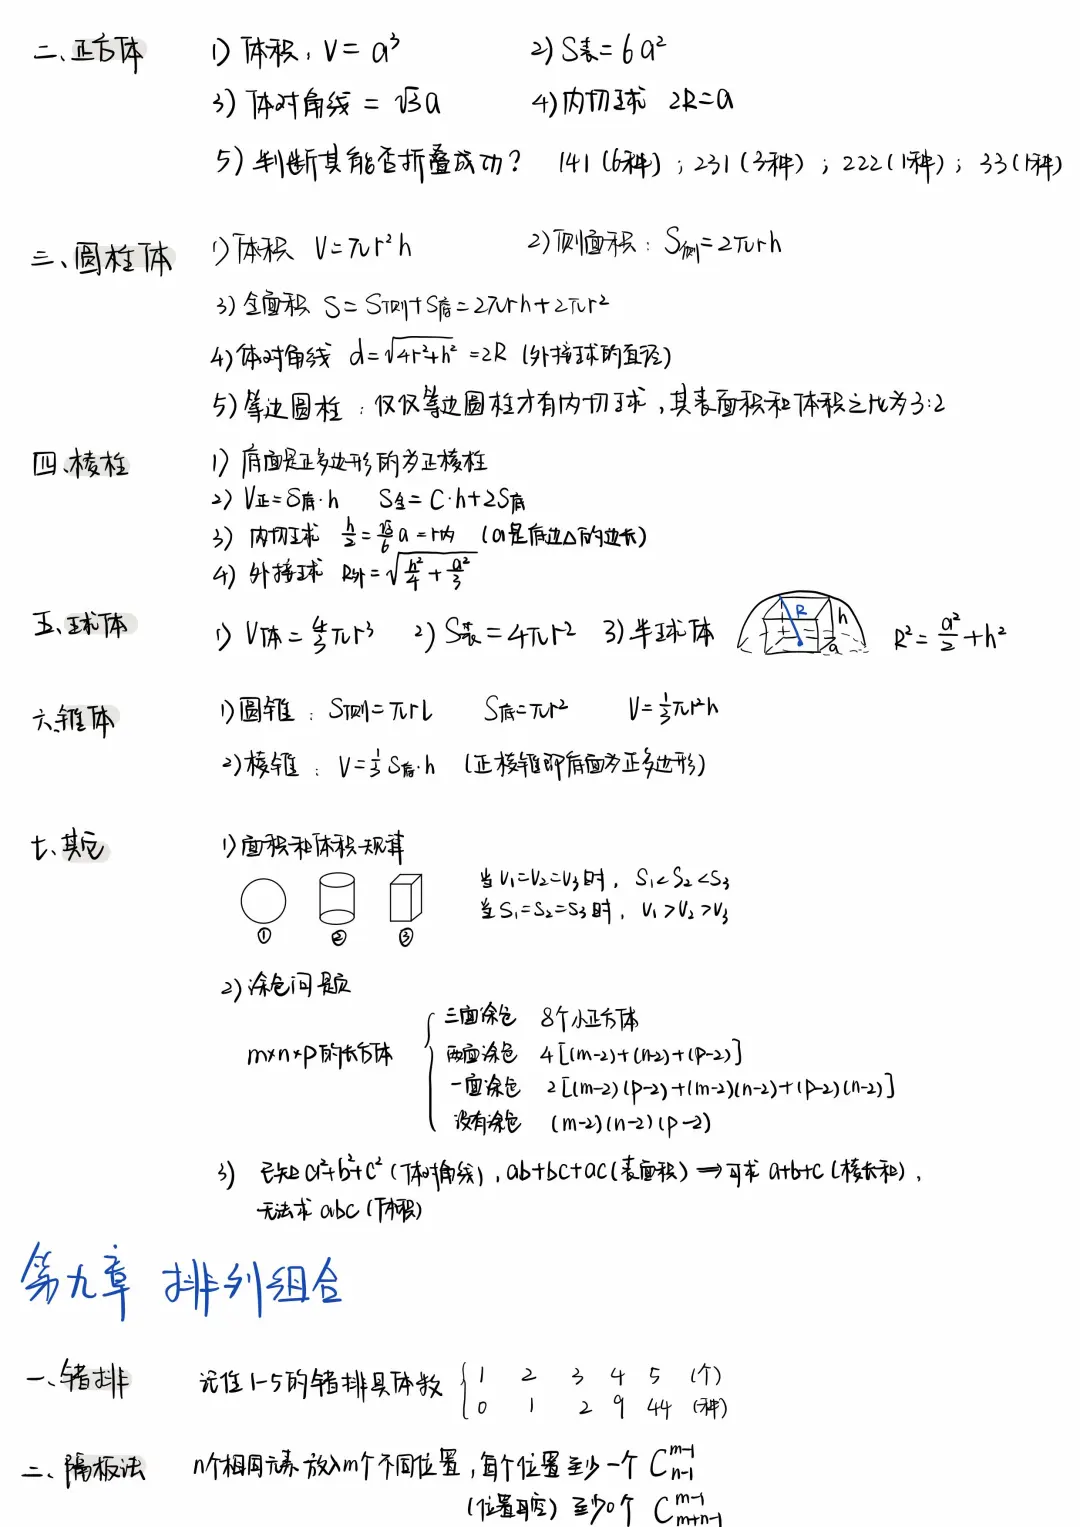 二、正方体 1) 体积：V=a³ 2) S表=6a²
3) 体对角线=√3a 4) 内切球 2R=a
5) 判断其能否折叠成功？ 141(6种)；231(3种)；222(1种)；33(1种)
三、圆柱体 1) 体积 V=πr²h 2) 侧面积：S侧=2πrh
3) 全面积 S=S侧+S底=2πrh+2πr²
4) 体对角线 d=√(4r²+h²)=2R (外接球的直径)
5) 等边圆柱：仅仅等边圆柱才有内切球，其表面积和体积之比为3:2
四、棱柱 1) 底面是正多边形的为正棱柱
2) V正=S底·h S全=C·h+2S底
3) 内切球 h/2=√3/6 a=r内 (a是底边△的边长)
4) 外接球 R外=√(h²/4+a²/3)
五、球体 1) V体=4/3πr³ 2) S表=4πr² 3) 半球体 R h a R²=a²/2+h²
六、锥体 1) 圆锥：S侧=πrL S底=πr² V=1/3πr²h
2) 棱锥：V=1/3 S底·h (正棱锥即底面为正多边形)
七、其它 1) 面积和体积规算
① ② ③
当V₁=V₂=V₃时，S₁<S₂<S₃
当S₁=S₂=S₃时，V₁>V₂>V₃
2) 涂色问题
m×n×p的长方体
三面涂色 8个小正方体
两面涂色 4[(m-2)+(n-2)+(p-2)]
一面涂色 2[(m-2)(p-2)+(m-2)(n-2)+(p-2)(n-2)]
没有涂色 (m-2)(n-2)(p-2)
3) 已知a²+b²+c²(体对角线)，ab+bc+ac(表面积)⇒可求a+b+c(棱长和)，
无法求abc(体积)
第九章 排列组合
一、错排 记住1-5的错排具体数 1 2 3 4 5 (个)
0 1 2 9 44 (种)
二、隔板法 n个相同元素放入m个不同位置，每个位置至少一个 C_{n-1}^{m-1}
(位置可空) 至少0个 C_{m+n-1}^{m-1}